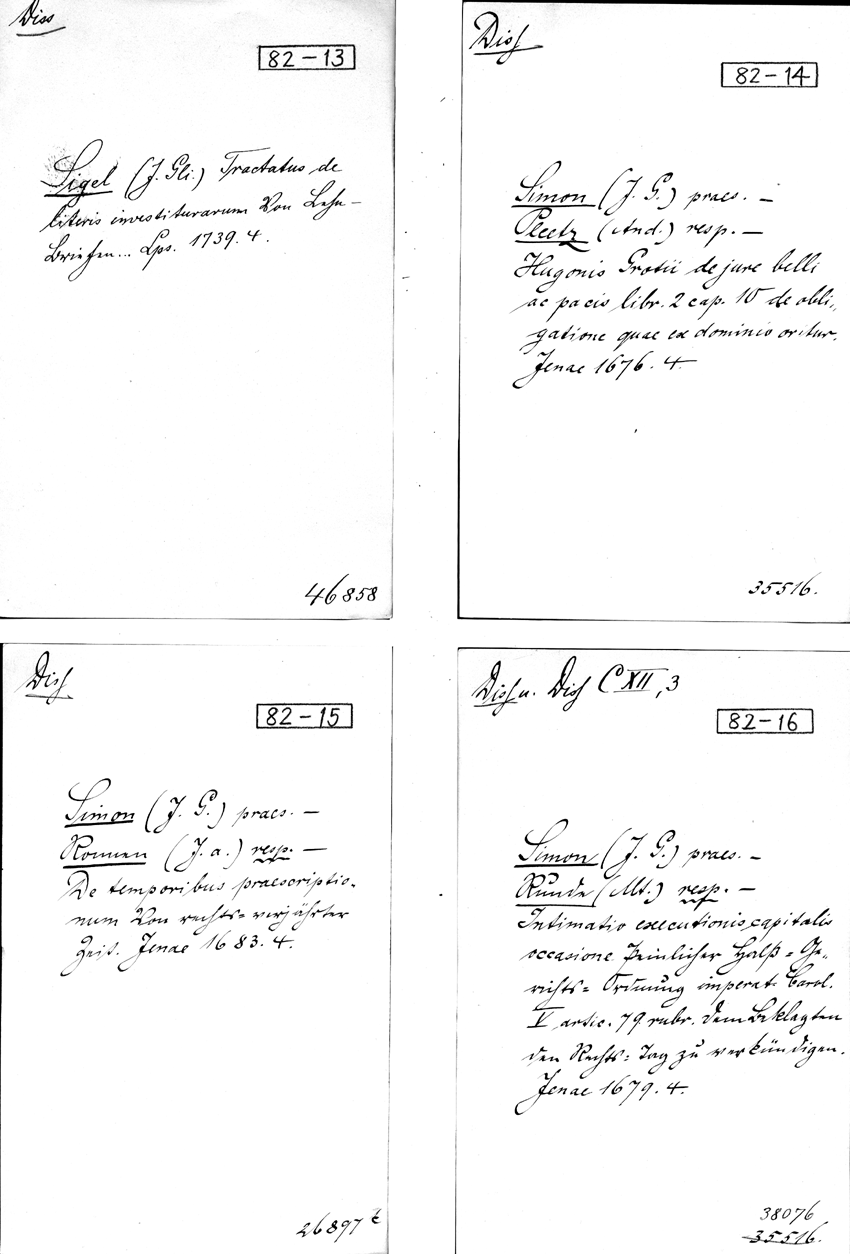 Diss
82-13
Sigel (J. Gli.) Tractatus de
literis investiturarum Von Lehn-
Briefen... Lps. 1739. 4.
46858
Diss
82-14
Simon (J. G.) praes. —
(And.) resp. —
Hugonis Grotii de jure belli
ac pacis libr. 2 cap. 10 de obli-
gatione quae ex dominio oritur.
Jenae 1676. 4.
35516.
Diss
82-15
Simon (J. G.) praes. —
Ronnen (J. a.) resp. —
De temporibus praescriptio-
num Von rechts=verjährter
Zeit. Jenae 1683. 4.
26897 t
Diss u. Diss C XII, 3
82-16
Simon (J. G.) praes. —
Runde (Mt.) resp. —
Intimatio executionis capitalis
occasione Peinlicher Halß=Ge-
richts=Ordnung imperat. Carol.
V artic. 79. rubr. dem Beklagten
den Rechts=Tag zu verkündigen.
Jenae 1679. 4.
38076
35516.